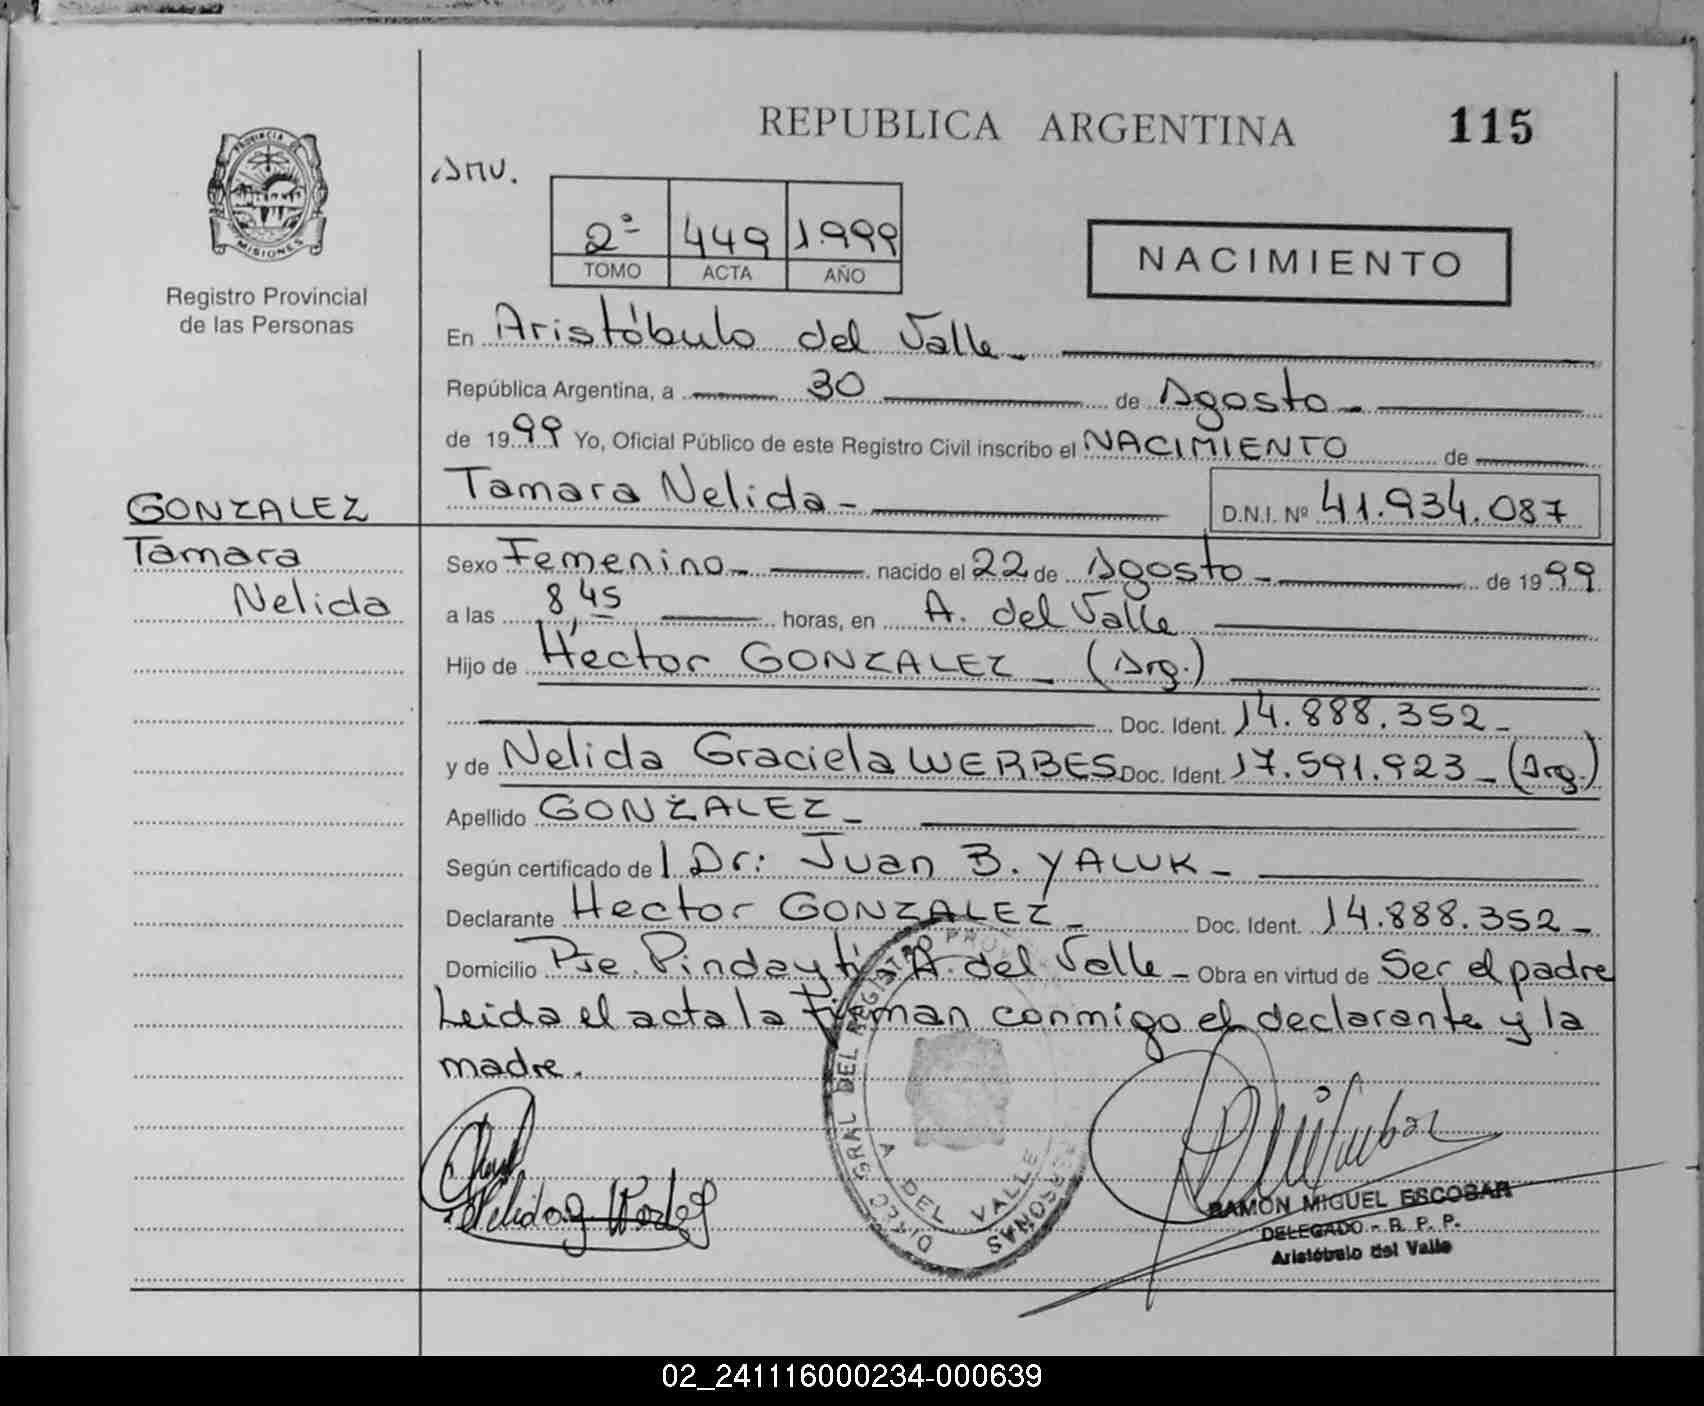 REPUBLICA ARGENTINA
115
PROVINCIA DE
MISIONES
Registro Provincial
de las Personas
2º 449 1.999
TOMO ACTA AÑO
NACIMIENTO
En Aristóbulo del Valle
República Argentina, a 30 de Agosto
de 1999 Yo, Oficial Público de este Registro Civil inscribo el NACIMIENTO de
Tamara Nelida D.N.I. Nº 41.934.087
GONZALEZ
Tamara
Nelida
Sexo Femenino nacido el 22 de Agosto de 1999
a las 8,45 horas, en A. del Valle
Hijo de Héctor GONZALEZ (Arg.)
Doc. Ident. 14.888.352
y de Nelida Graciela WERBES Doc. Ident. 17.591.923 (Arg.)
Apellido GONZALEZ
Según certificado de l Dr: Juan B. YALUK
Declarante Hector GONZALEZ Doc. Ident. 14.888.352
Domicilio Pje. Pindayti A. del Valle Obra en virtud de Ser el padre
Leida el acta la firman conmigo el declarante y la
madre.
DIREC GRAL DEL REGISTRO PROV PERSONAS
A DEL VALLE
RAMON MIGUEL ESCOBAR
DELEGADO - R. P. P.
Aristóbulo del Valle
02_241116000234-000639